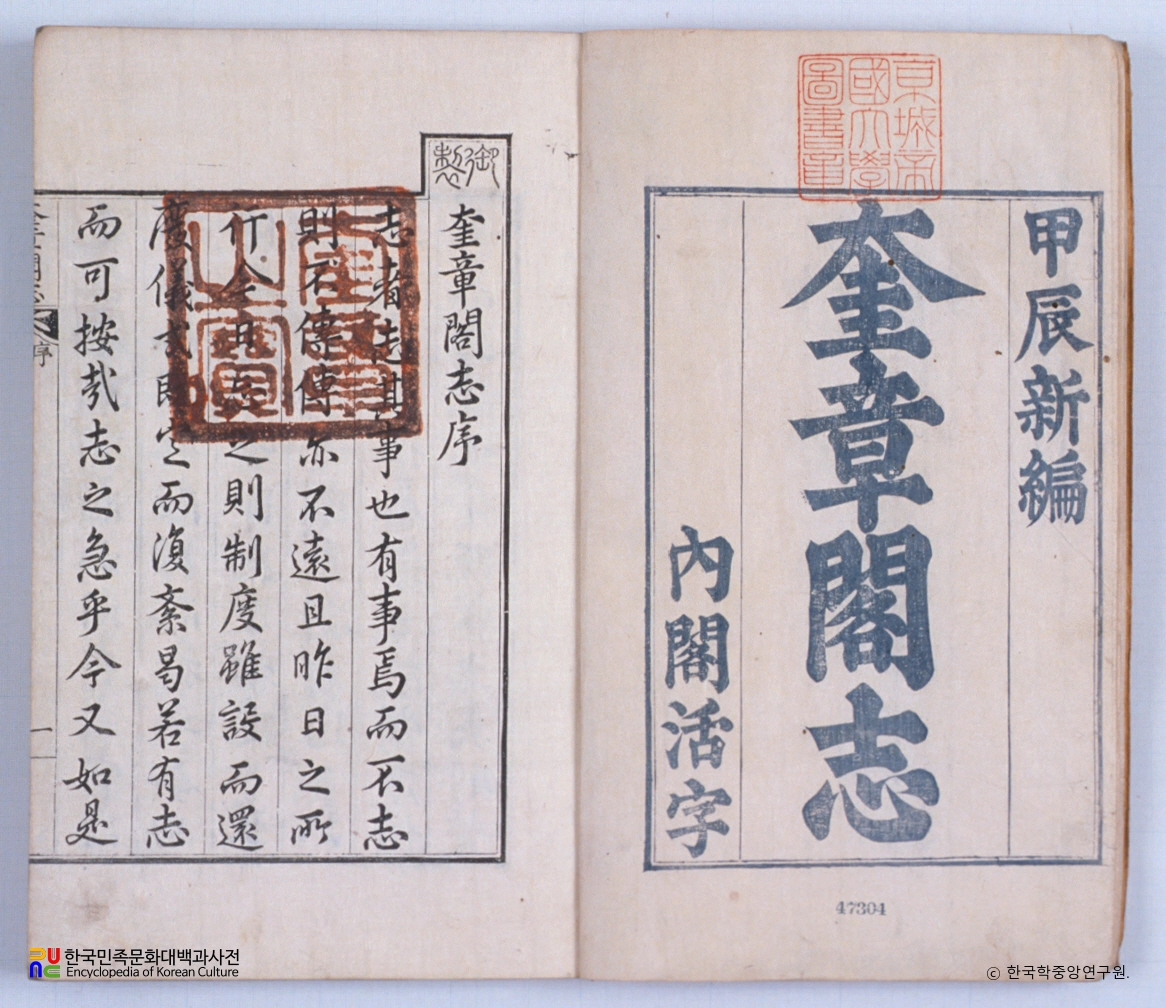 京城帝
國大學
圖書章
甲辰新編
奎章閣志
內閣活字
47304
御製
奎章閣志序
志者志其事也有事焉而不志
則不傳傳亦不遠且昨日之所
行今日忘之則制度雖設而還
廢儀式定而復紊曷若有志
而可按哉志之急乎今又如是
奎章閣志
序
一
奎章
之寶
한국민족문화대백과사전
Encyclopedia of Korean Culture
© 한국학중앙연구원.